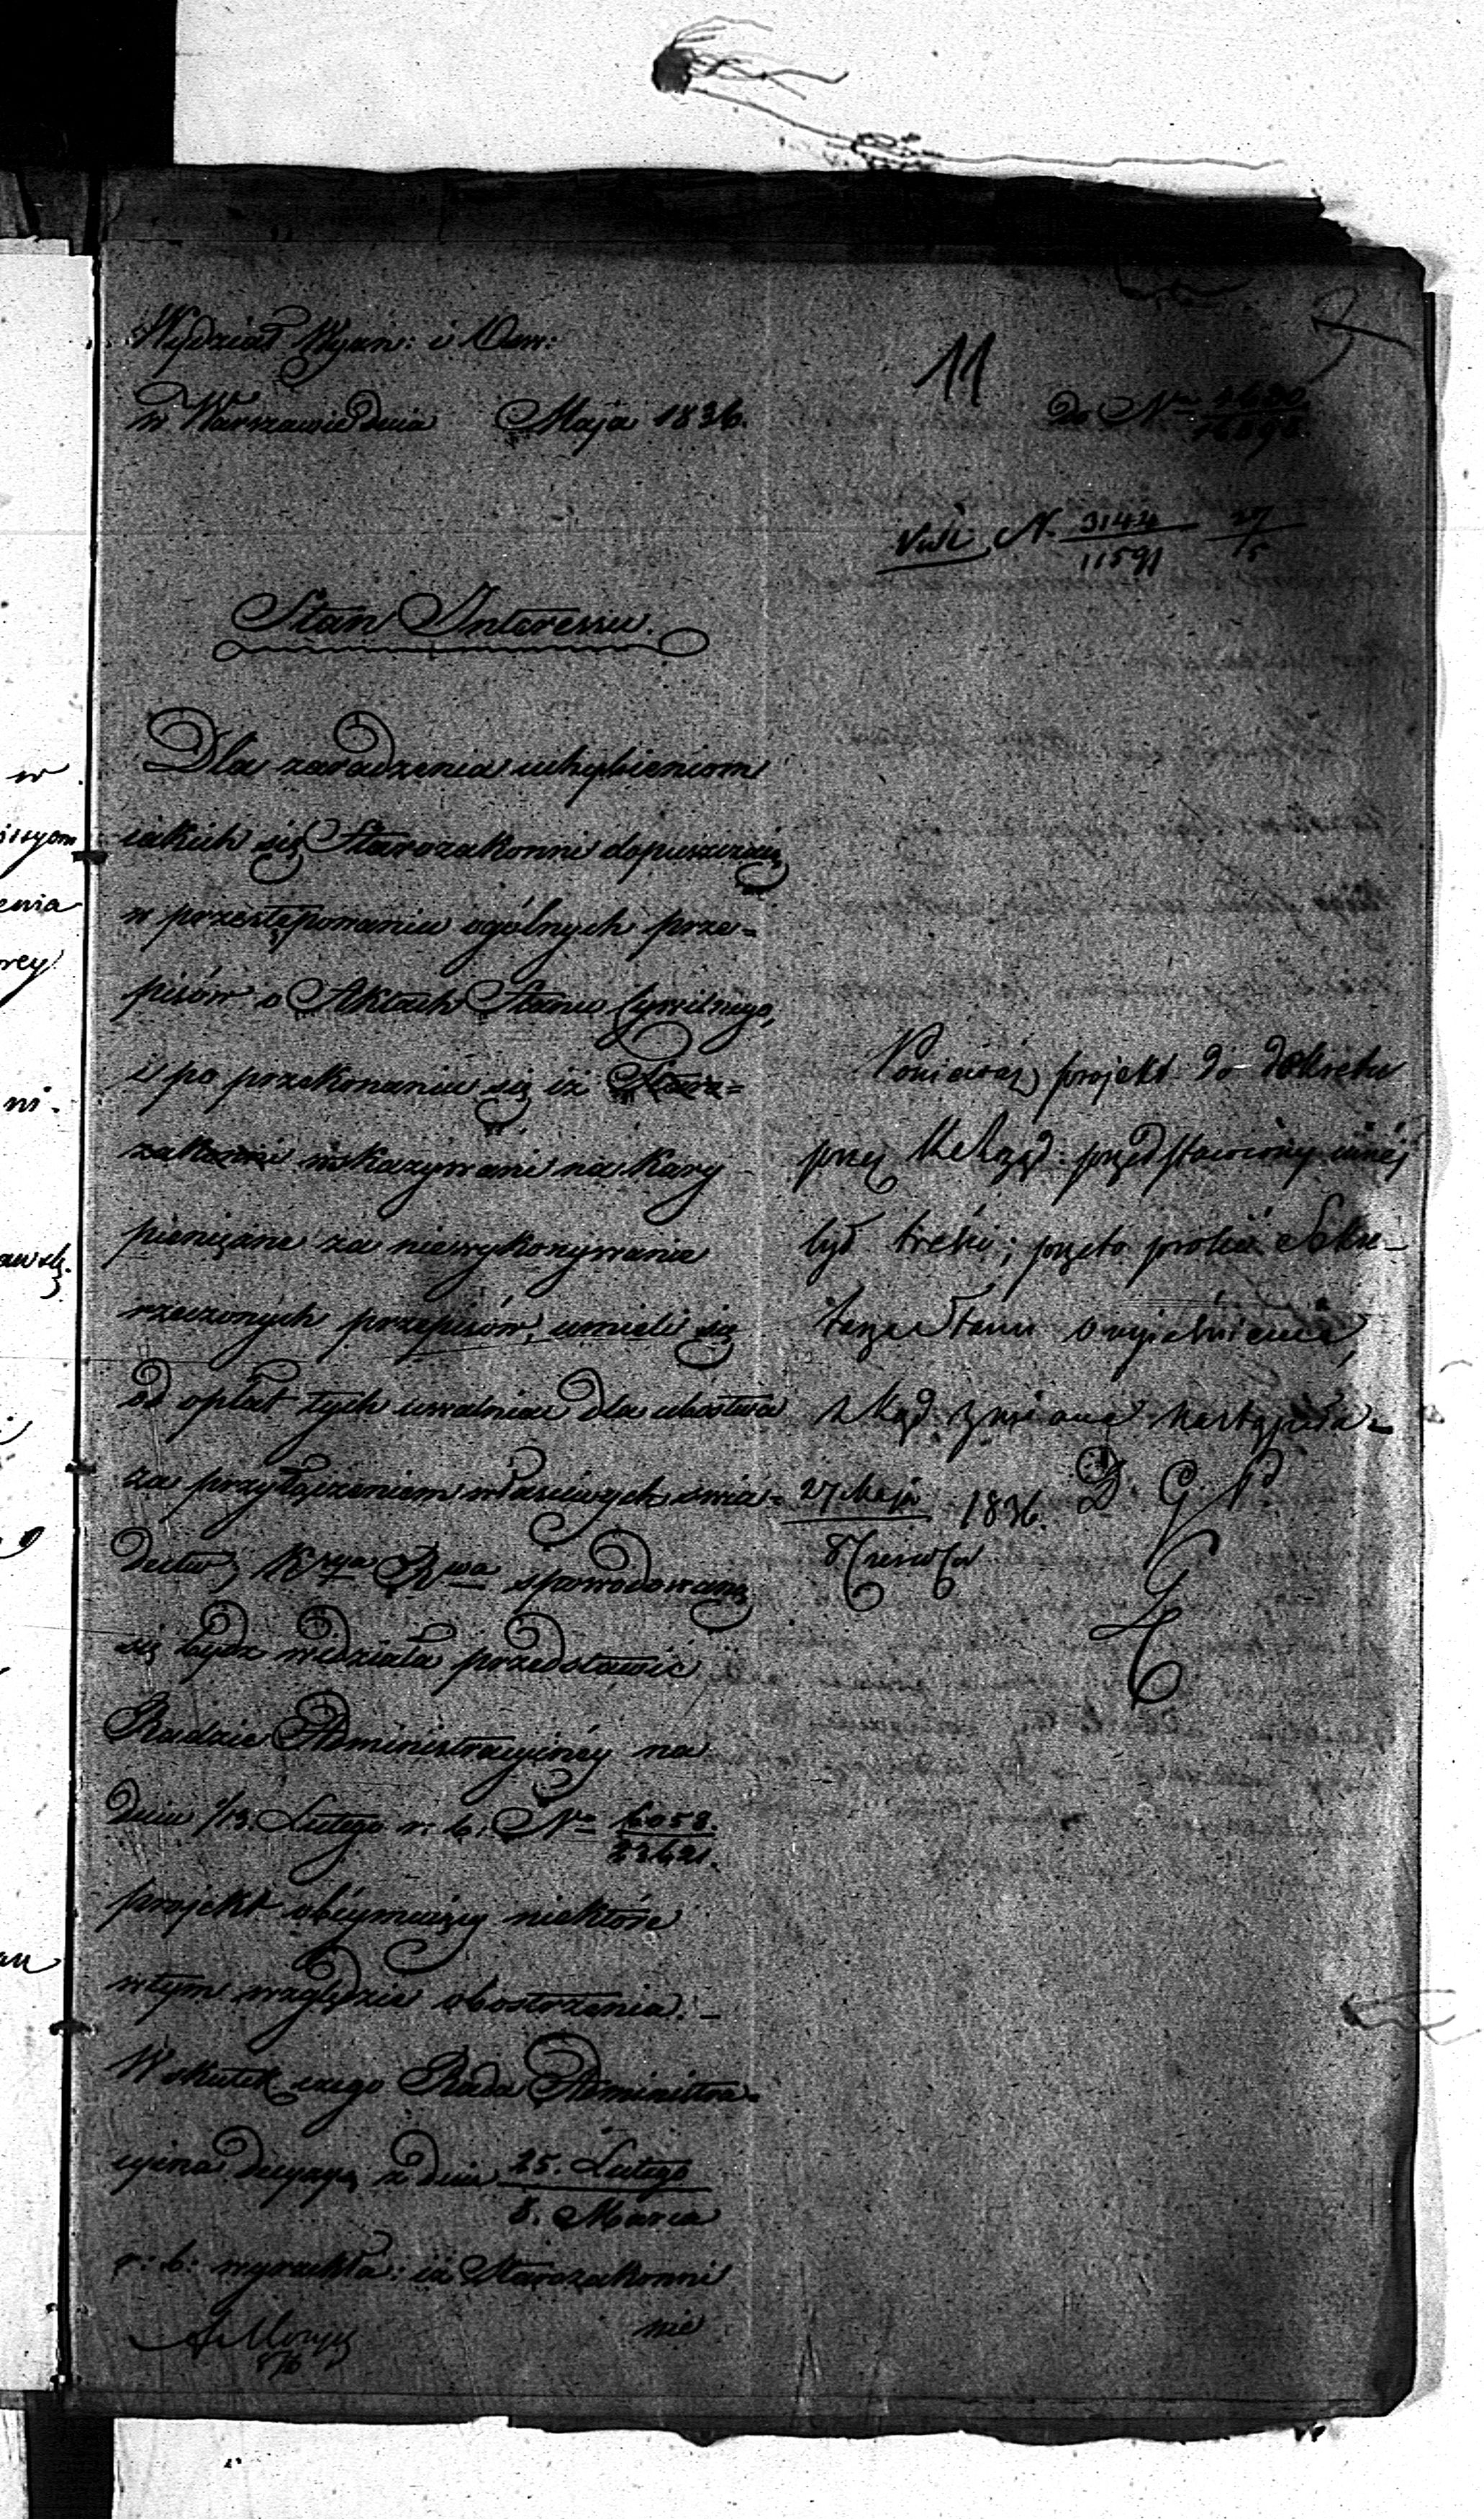 Wydział Wyzn: i Ośw:
w Warszawie dnia Maja 1836.
11
do Nru 4690
Vide N. 3144/11591 27/5
Stan Interessu.
Dla zaradzenia uchybieniom
iakich się Starozakonni dopuszczaią
w przestępowaniu ogólnych prze=
pisów o Aktach Stanu Cywilnego,
i po przekonaniu się iż Staro=
zakonni wskazywani na kary
pieniężne za niewykonywanie
rzeczonych przepisów, umieli się
od opłat tych uwalniać dla ubóstwa
za przyłączeniem właściwych świa=
dectw, Kssya Rwa spowodowaną
się bydz widziała przedstawić
Radzie Administracyinéy na
dniu 1/13 Lutego r. b. Nro 6058/23621.
projekt obeymuiący niektóre
w tym względzie obostrzenia. –
W skutek czego Rada Administra=
cyina decyzyą z dnia 25. Lutego
8. Marca
r: b: wyrzekła: iż Starozakonni
nie
Ponieważ projekt do dekretu
przez Wydział przedstawiony innéj
był treści; przeto prosić Sekre–
tarza Stanu o wyjaśnienie,
zkąd zmiana nastąpiła –
27 Maja
8 Czerwca 1836. D. G. P.